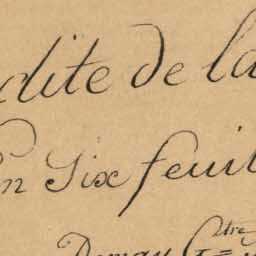 dite de la
en Six feuil
Demay G